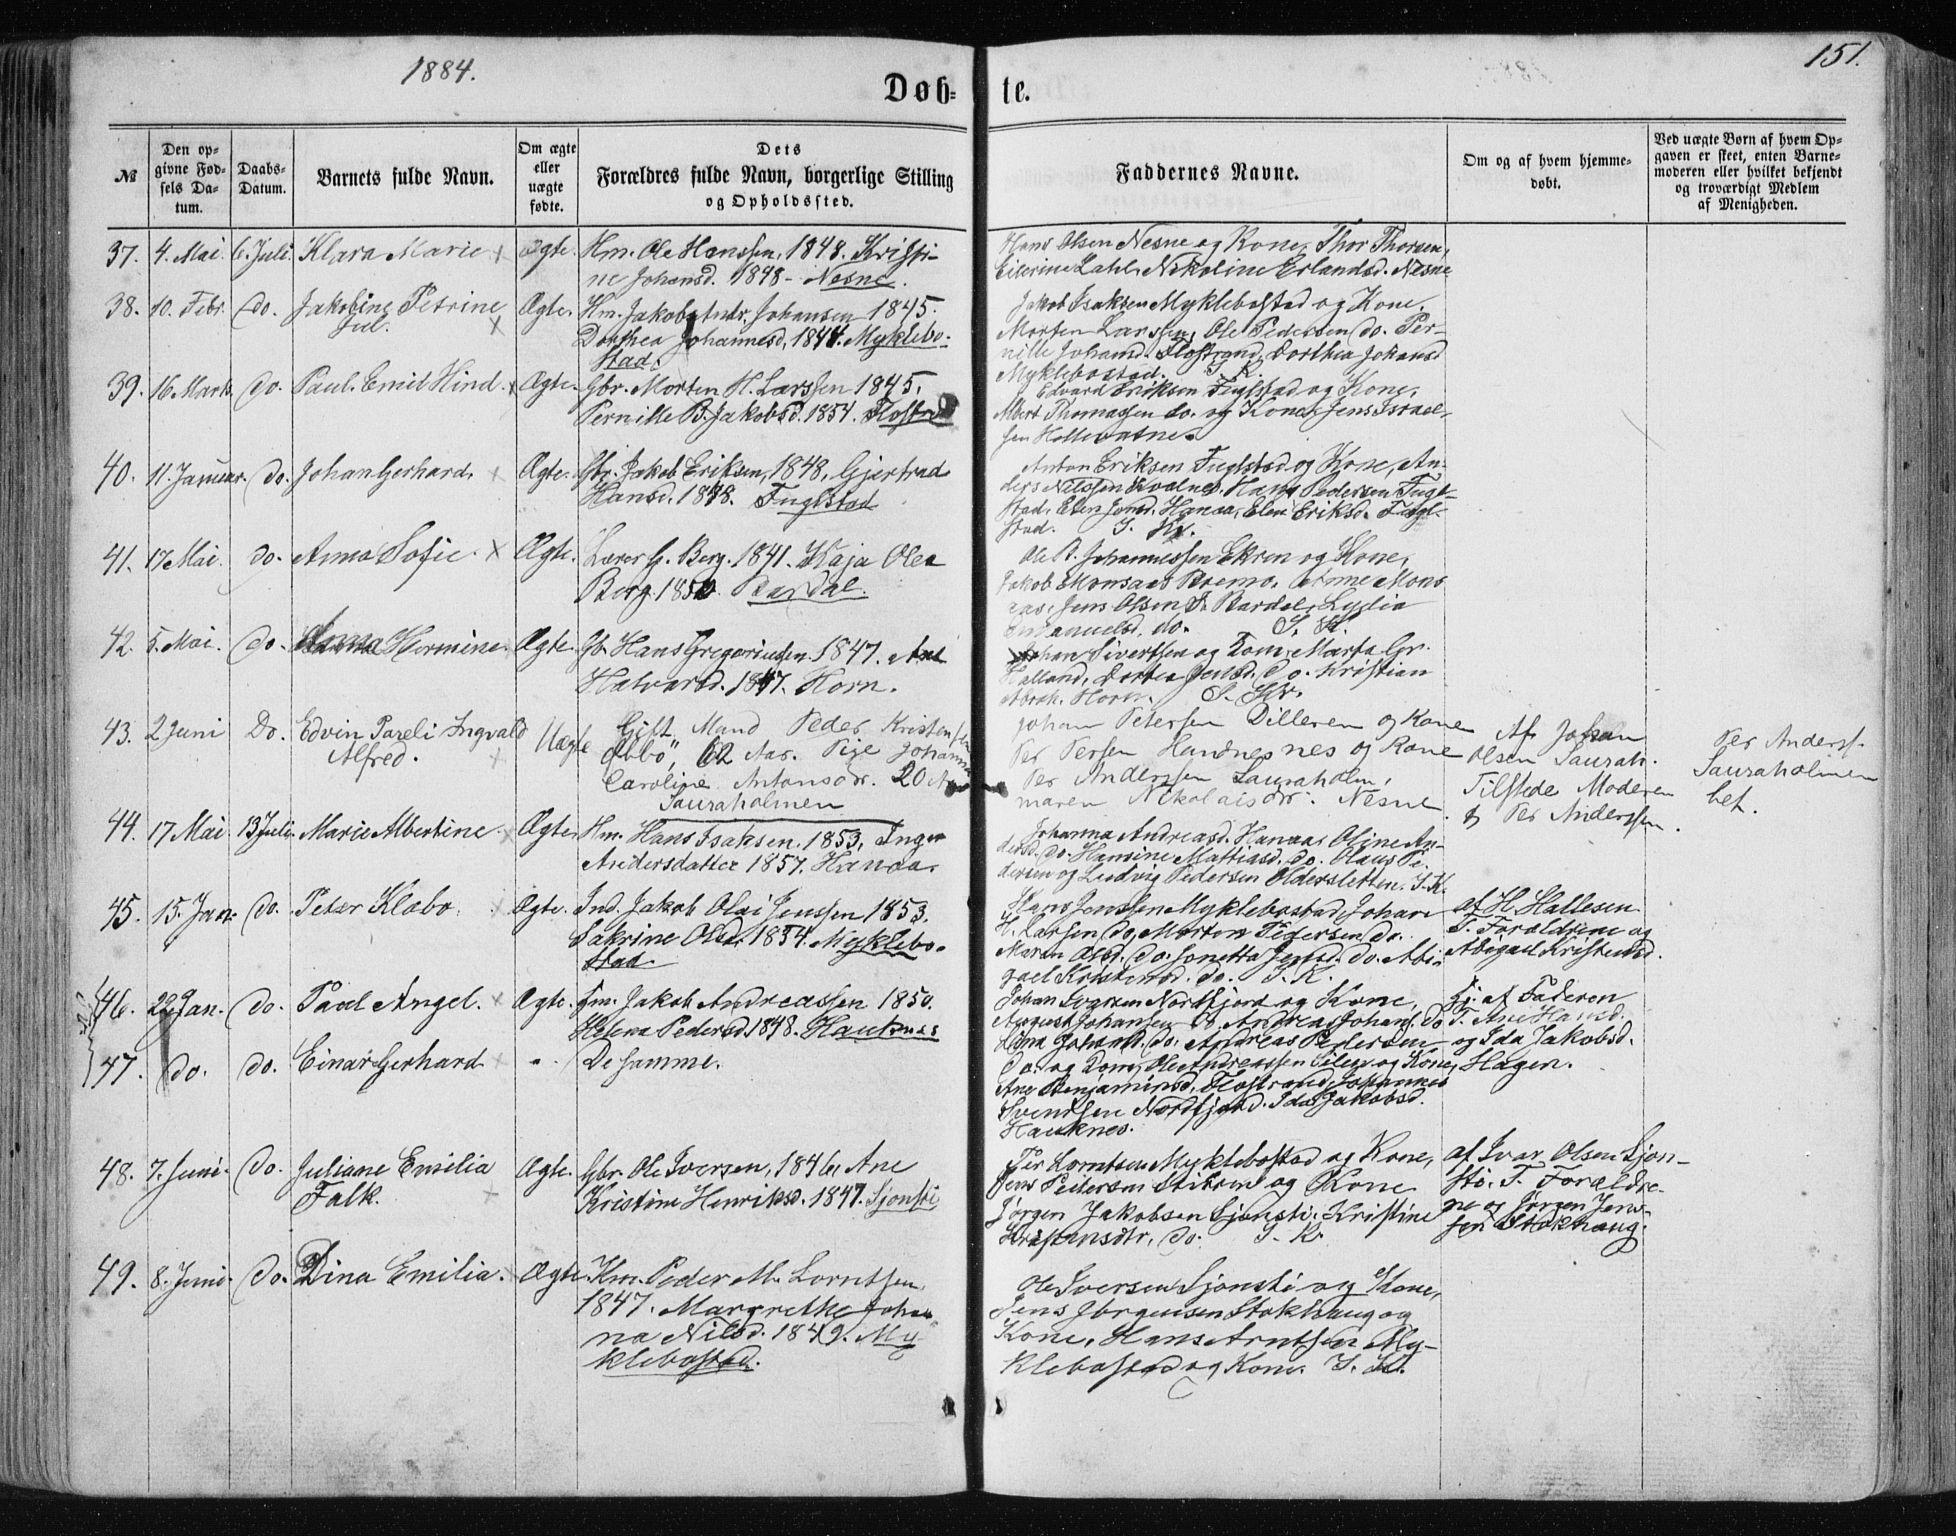 1884.
151.
Døb-
te.
№
Den op-
givne Fød-
sels Da-
tum.
Daabs-
Datum.
Barnets fulde Navn.
Om ægte
eller
uægte
fødte.
Dets
Forældres fulde Navn, borgerlige Stilling
og Opholdssted.
Faddernes Navne.
Om og af hvem hjemme-
døbt.
Ved uægte Børn af hvem Op-
gaven er skeet, enten Barne-
moderen eller hvilket bekjendt
og troværdigt Medlem
af Menigheden.
37. 4. Mai. 6. Juli. Klara Marie Ægte. Hm. Ole Hanssen, 1848. Kristi-
ne Johansd. 1848 - Nesne.
Hans Olsen Nesne og Kone, Thor Thorsen,
Zahl, Nikoline Erlandsd. Nesne
38. 10. Febr. do. Jakobine Petrine
Jul.
Ægte. Hm. Jakob Johansen 1845.
Dorthea Johannesd, 1844. Myklebo-
stad.
Jakob Isaksen Myklebostad og Kone,
Morten Larssen, Ole Pedersen do. Per-
nille Johansd. Flostrand, Dorthea Johansd
Myklebostad. S. K.
39. 16. Marts. do. Paul Emil Hind. Ægte. Gbr. Morten H. Larssen 1845.
Pernille B. Jakobsd. 1854. Flostrand
Edvard Eriksen Fuglstad og Kone,
Albert Thomassen do. og Kone, Jens Israel-
sen
40. 11. Januar. do. Johan Gerhard. Ægte. Gbr. Jakob Eriksen, 1848, Gjertrud
Hansd. 1848. Fuglstad
Anton Eriksen Fuglstad og Kone, An-
ders Nilssen Kvalnes, Hans Pedersen Fugl-
stad, Hanaa, Elen Eriksd. Fugl-
stad. S. K.
41. 17 Mai. do. Anna Sofie. Ægte. Lærer G. Berg. 1841. Kaja Olea
Berg. 1850. Bardal.
Ole B. Johannessen Ekren og Kone,
Jakob Monsaas Anne Mons
aas, Jens Olsen Bardal, Lydia
Emanuelsd. do. S. K.
42. 5. Mai. do. Anna Hermine. Ægte. Gb. Hans Gregoriussen 1847. Ane
Halvorsd. 1847. Horn.
Johan Sivertsen og Kone, Marta Gr.
Halland, Dortea Jensd. do. Kristian
Abrah. Horn. S. K.
43. 2 Juni Do. Edvin Pareli Ingvald
Alfred.
Uægte Gift Mand Peder Kristensen
Æbbø, 62 Aar. Pige Johanna
Caroline Antonsdr. 20 Aar
Sauraholmen
Johan Petersen Dilleren og Kone
Per Persen Handnesnes og Kone
Per Anderssen Sauraholm,
maren Nikolaisdr. Nesne
Af Johan
Olsen Saurah.
Tilstede Moderen
og Per Anderssen.
Per Anderss.
Sauraholmen
bet.
44. 17 Mai 13 Juli Marie Albertine Ægte Hm. Hans Isaksen. 1853, Inger
Andersdatter 1857. Hanaa.
Johanna Andreasd. Hanaa, Oline An-
dersd. do. Hansine Mattiasd. do. Olaus Pe-
dersen og Ludvig Pedersen Oldersletten. S. K.
45. 15. Jan. do. Peter Klabo. Ægte. Ind. Jakob Olai Jenssen 1853.
Sakrine Olsd. 1854. Myklebo-
stad.
Hans Jenssen Myklebostad, Johan
H. Larsen do, Morten Pedersen do.
Maren Olsd. do. Jonetta Jensd. do. Abi-
gael Kristensd. do. S. K.
af H. Hallesen
T. Forældrene og
Abigael Kristensd.
46. 22. Jan. do. Paul Angel. Ægte. Gm. Jakob Andreassen 1850.
Helena Pedersd. 1848. Hauknes
Johan Ivarsen Nordfjord og Kone,
August Johansen do, Andrea Johans. do
Gj. af Faderen
T. Ane Hansd.
47. do. do. Einar Gerhard " De samme.
Lina Johans. do. Andreas Pedersen
do. og Kone, Ole Andreassen og Kone,
Ane Benjaminsd. Flostrand, Johannes
Svendsen Nordfjord. Ida Jakobsd.
Hauknes.
og Ida Jakobsd.
Hagen.
48. 7. Juni. do. Juliane Emilia
Falk.
Ægte. Gbr. Ole Iversen, 1846, Ane
Kristine Henriksd. 1847. Sjonsti
Per Lorntsen Myklebostad og Kone,
Jens Petersen og Kone
Jørgen Jakobsen Sjonsti. Kristine
Kristiansdtr. do. S. K.
af Ivar Olsen Sjon-
sti. T. Forældre-
ne og Jørgen Jens-
sen Stokhaug.
49. 8. Juni. do. Dina Emilia. Ægte. Hm. Peder M. Lorntsen
1847. Margrethe Johan-
na Nilsd. 1849. My-
klebostad.
Ole Iversen Sjonsti og Kone,
Jens Jørgensen Stokhaug og
Kone, Hans Arntsen My-
klebostad og Kone. S. K.